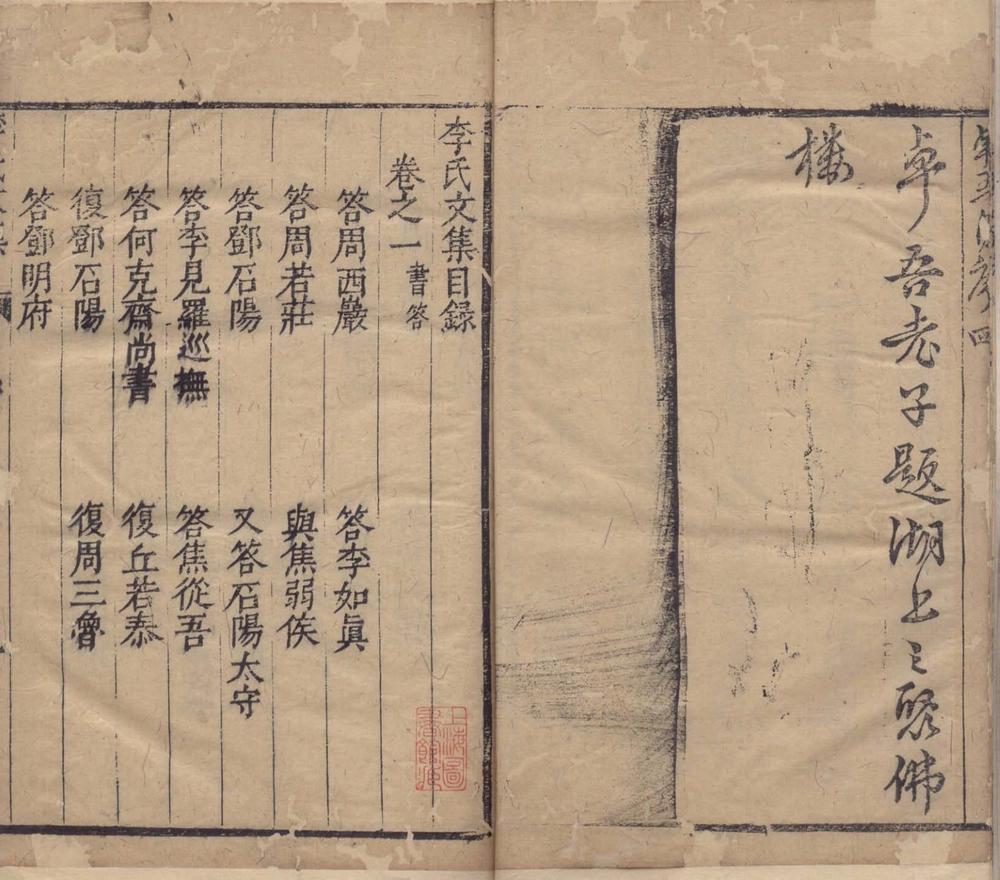 卓吾老子題湖上之聚佛
樓
李氏文集目録
卷之一 書答
答周西巖 答李如眞
答周若莊 與焦弱侯
答鄧石陽 又答石陽太守
答李見羅巡撫 答焦從吾
答何克齋尚書 復丘若泰
復鄧石陽 復周三魯
答鄧明府
上海圖
書館藏